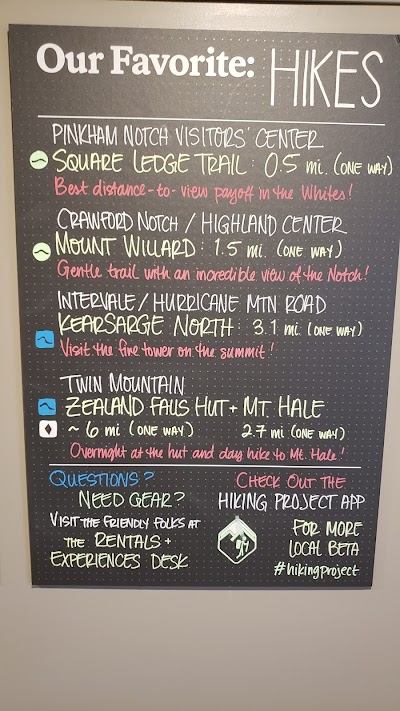 Our Favorite: HIKES
PINKHAM NOTCH VISITORS' CENTER
SQUARE LEDGE TRAIL: 0.5 mi. (ONE WAY)
Best distance-to-view payoff in the Whites!
CRAWFORD NOTCH / HIGHLAND CENTER
MOUNT WILLARD: 1.5 mi. (ONE WAY)
Gentle trail with an incredible view of the Notch!
INTERVALE / HURRICANE MTN ROAD
KEARSARGE NORTH: 3.1 mi. (ONE WAY)
Visit the fire tower on the summit!
TWIN MOUNTAIN
ZEALAND FALLS HUT + MT. HALE
~ 6 mi (ONE WAY) 2.7 mi (ONE WAY)
Overnight at the hut and day hike to Mt. Hale!
QUESTIONS?
NEED GEAR?
VISIT THE FRIENDLY FOLKS AT
THE RENTALS +
EXPERIENCES DESK
CHECK OUT THE
HIKING PROJECT APP
FOR MORE
LOCAL BETA
#hikingproject